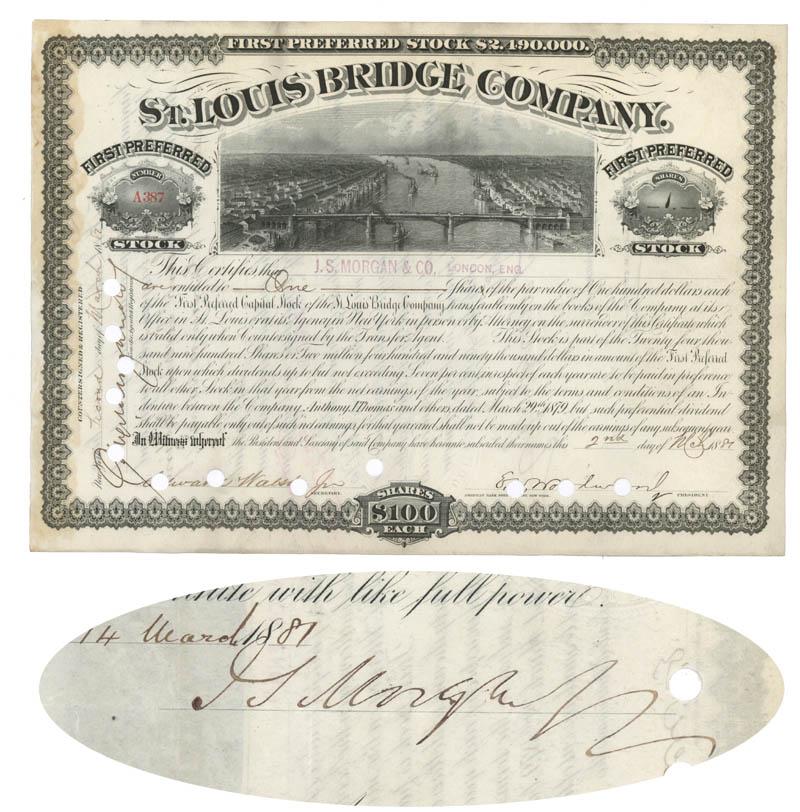 FIRST PREFERRED STOCK $2,490,000.
ST. LOUIS BRIDGE COMPANY.
FIRST PREFERRED
NUMBER
A387
STOCK
FIRST PREFERRED
SHARES
1
STOCK
This Certifies that J.S. MORGAN & CO, LONDON, ENG.
are entitled to One Shares of the par value of One hundred dollars each
of the First Preferred Capital Stock of the St. Louis Bridge Company transferable only on the books of the Company at its
Office in St. Louis or at its Agency in New York in person or by Attorney on the surrender of this Certificate which
is valid only when Countersigned by the Transfer Agent. This Stock is part of the Twenty four thou
sand nine hundred Shares or Two million four hundred and ninety thousand dollars in amount of the First Preferred
Stock upon which dividends up to but not exceeding Seven per cent in respect of each year are to be paid in preference
to all other Stock in that year from the net earnings of the year, subject to the terms and conditions of an In
denture between the Company, Anthony J. Thomas and others, dated March 29th 1879, but such preferential dividend
shall be payable only out of such net earnings for that year and shall not be made up out of the earnings of any subsequent year
In Witness whereof the President and Secretary of said Company have hereunto subscribed their names this 2nd day of Mch 1881
COUNTERSIGNED & REGISTERED
this Second day of March 1881
Edward Walsh Jr
SECRETARY.
AMERICAN BANK NOTE CO. NEW YORK.
PRESIDENT
SHARES
$100
EACH
with like full power.
14 March 1881
J S Morgan